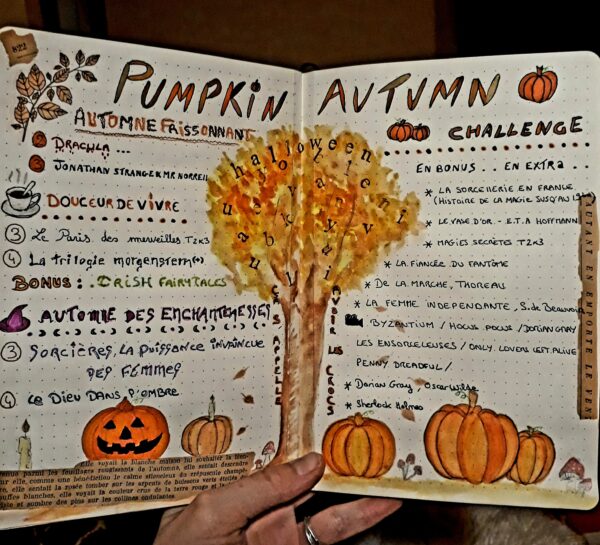 822
PUMPKIN AUTUMN
CHALLENGE
AUTOMNE FRISSONNANT
DRACULA ...
JONATHAN STRANGE & MR NORRELL
DOUCEUR DE VIVRE
③ Le Paris des merveilles T2x3
④ La trilogie morgenstern
BONUS : IRISH FAIRYTALES
AUTOMNE DES ENCHANTERESSES
③ SORCIÈRES, LA PUISSANCE INVAINCUE
DES FEMMES
④ LE DIEU DANS L'OMBRE
halloween
ÇA S'APPELLE
AVOIR LES CROCS
EN BONUS .. EN EXTRA ...
* LA SORCELLERIE EN FRANCE
(HISTOIRE DE LA MAGIE JUSQU'AU
* LE VASE D'OR - E.T.A HOFFMANN
* MAGIES SECRÈTES T2X3
* LA FIANCÉE DU FANTÔME
* DE LA MARCHE, THOREAU
* LA FEMME INDÉPENDANTE, S. de Beauvoir
BYZANTIUM / HOCUS POCUS / DORIAN GRAY
LES ENSORCELEUSES / ONLY LOVERS LEFT ALIVE
PENNY DREADFUL /
* Dorian Gray, Oscar Wilde
* Sherlock Holmes
AUTANT EN EMPORTE LE VEN
elle voyait la blanche maison lui souhaiter la bien-
venue parmi les feuillages rougissants de l'automne, elle sentait descendre
sur elle, comme une bénédiction le calme silencieux du crépuscule champê-
tre, elle sentait la rosée tomber sur les arpents de buissons verts étoilés de
touffes blanches, elle voyait la couleur crue de la terre rouge et le
triste et sombre des pins sur les collines ondulantes.